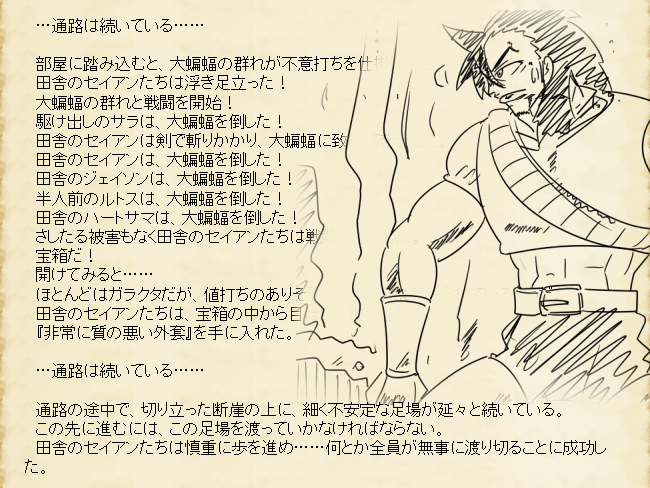 …通路は続いている……
部屋に踏み込むと、大蝙蝠の群れが不意打ちを仕
田舎のセイアンたちは浮き足立った！
大蝙蝠の群れと戦闘を開始！
駆け出しのサラは、大蝙蝠を倒した！
田舎のセイアンは剣で斬りかかり、大蝙蝠に致
田舎のセイアンは、大蝙蝠を倒した！
田舎のジェイソンは、大蝙蝠を倒した！
半人前のルトスは、大蝙蝠を倒した！
田舎のハートサマは、大蝙蝠を倒した！
さしたる被害もなく田舎のセイアンたちは戦
宝箱だ！
開けてみると……
ほとんどはガラクタだが、値打ちのありそ
田舎のセイアンたちは、宝箱の中から目
『非常に質の悪い外套』を手に入れた。
…通路は続いている……
通路の途中で、切り立った断崖の上に、細く不安定な足場が延々と続いている。
この先に進むには、この足場を渡っていかなければならない。
田舎のセイアンたちは慎重に歩を進め……何とか全員が無事に渡り切ることに成功し
た。